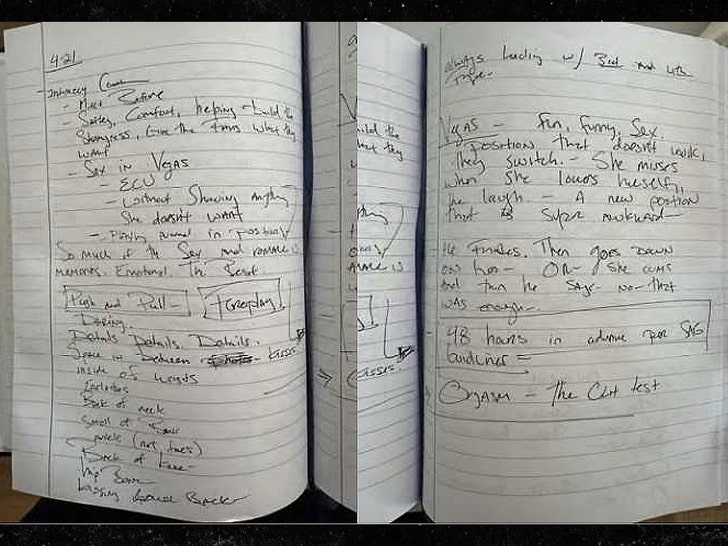 4-21
Intimacy Coor
- Meet Before
- Safety, Comfort, helping build the
Storyness, Give the fans what they
want
- Sex in Vegas
- ECU
- without Showing Anything
She doesn't want
- Playing in position
So much of the Sex and romance is
memories. Emotional. The Best
Push and Pull - Foreplay
Details, Details, Details.
Space in between Kisses
inside of
Back of neck
Smell of hair
(not lines)
Back of knee
hip Bone
Kissing lower Back
ild the
hat they
thing
mance is
Kisses
always leading w/ 3rd and 4th
Vegas - Fun, Funny, Sex.
position that doesn't work,
They switch. - She misses
when she lowers herself,
the laugh - A new position
that is Super awkward -
He Finishes. Then goes down
on her - OR - she cums
and then he says - no - that
was enough -
48 hours in advance per SAG
Guidlines =
Orgasm - The Clit test